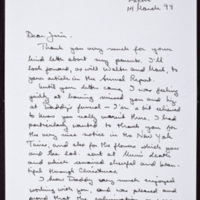 14 March 97
Dear Jim.
Thank you very much for your
kind letter about my parents. I'll
look forward, as will Walter and Mark, to
your article in the Annual Report.
Until your letter came I was feeling
guilty at having missed you and by
at Daddy's funeral – I'm a bit relieved
to know you really weren't there. I had
particularly wanted to thank you for
the very nice notice in the New York
Times, and also for the flowers which you
and he had sent at Mum's death
and which remained cheerful and beau-
tiful through Christmas.
I know Daddy very much enjoyed
working with you, and was pleased and
proud that the